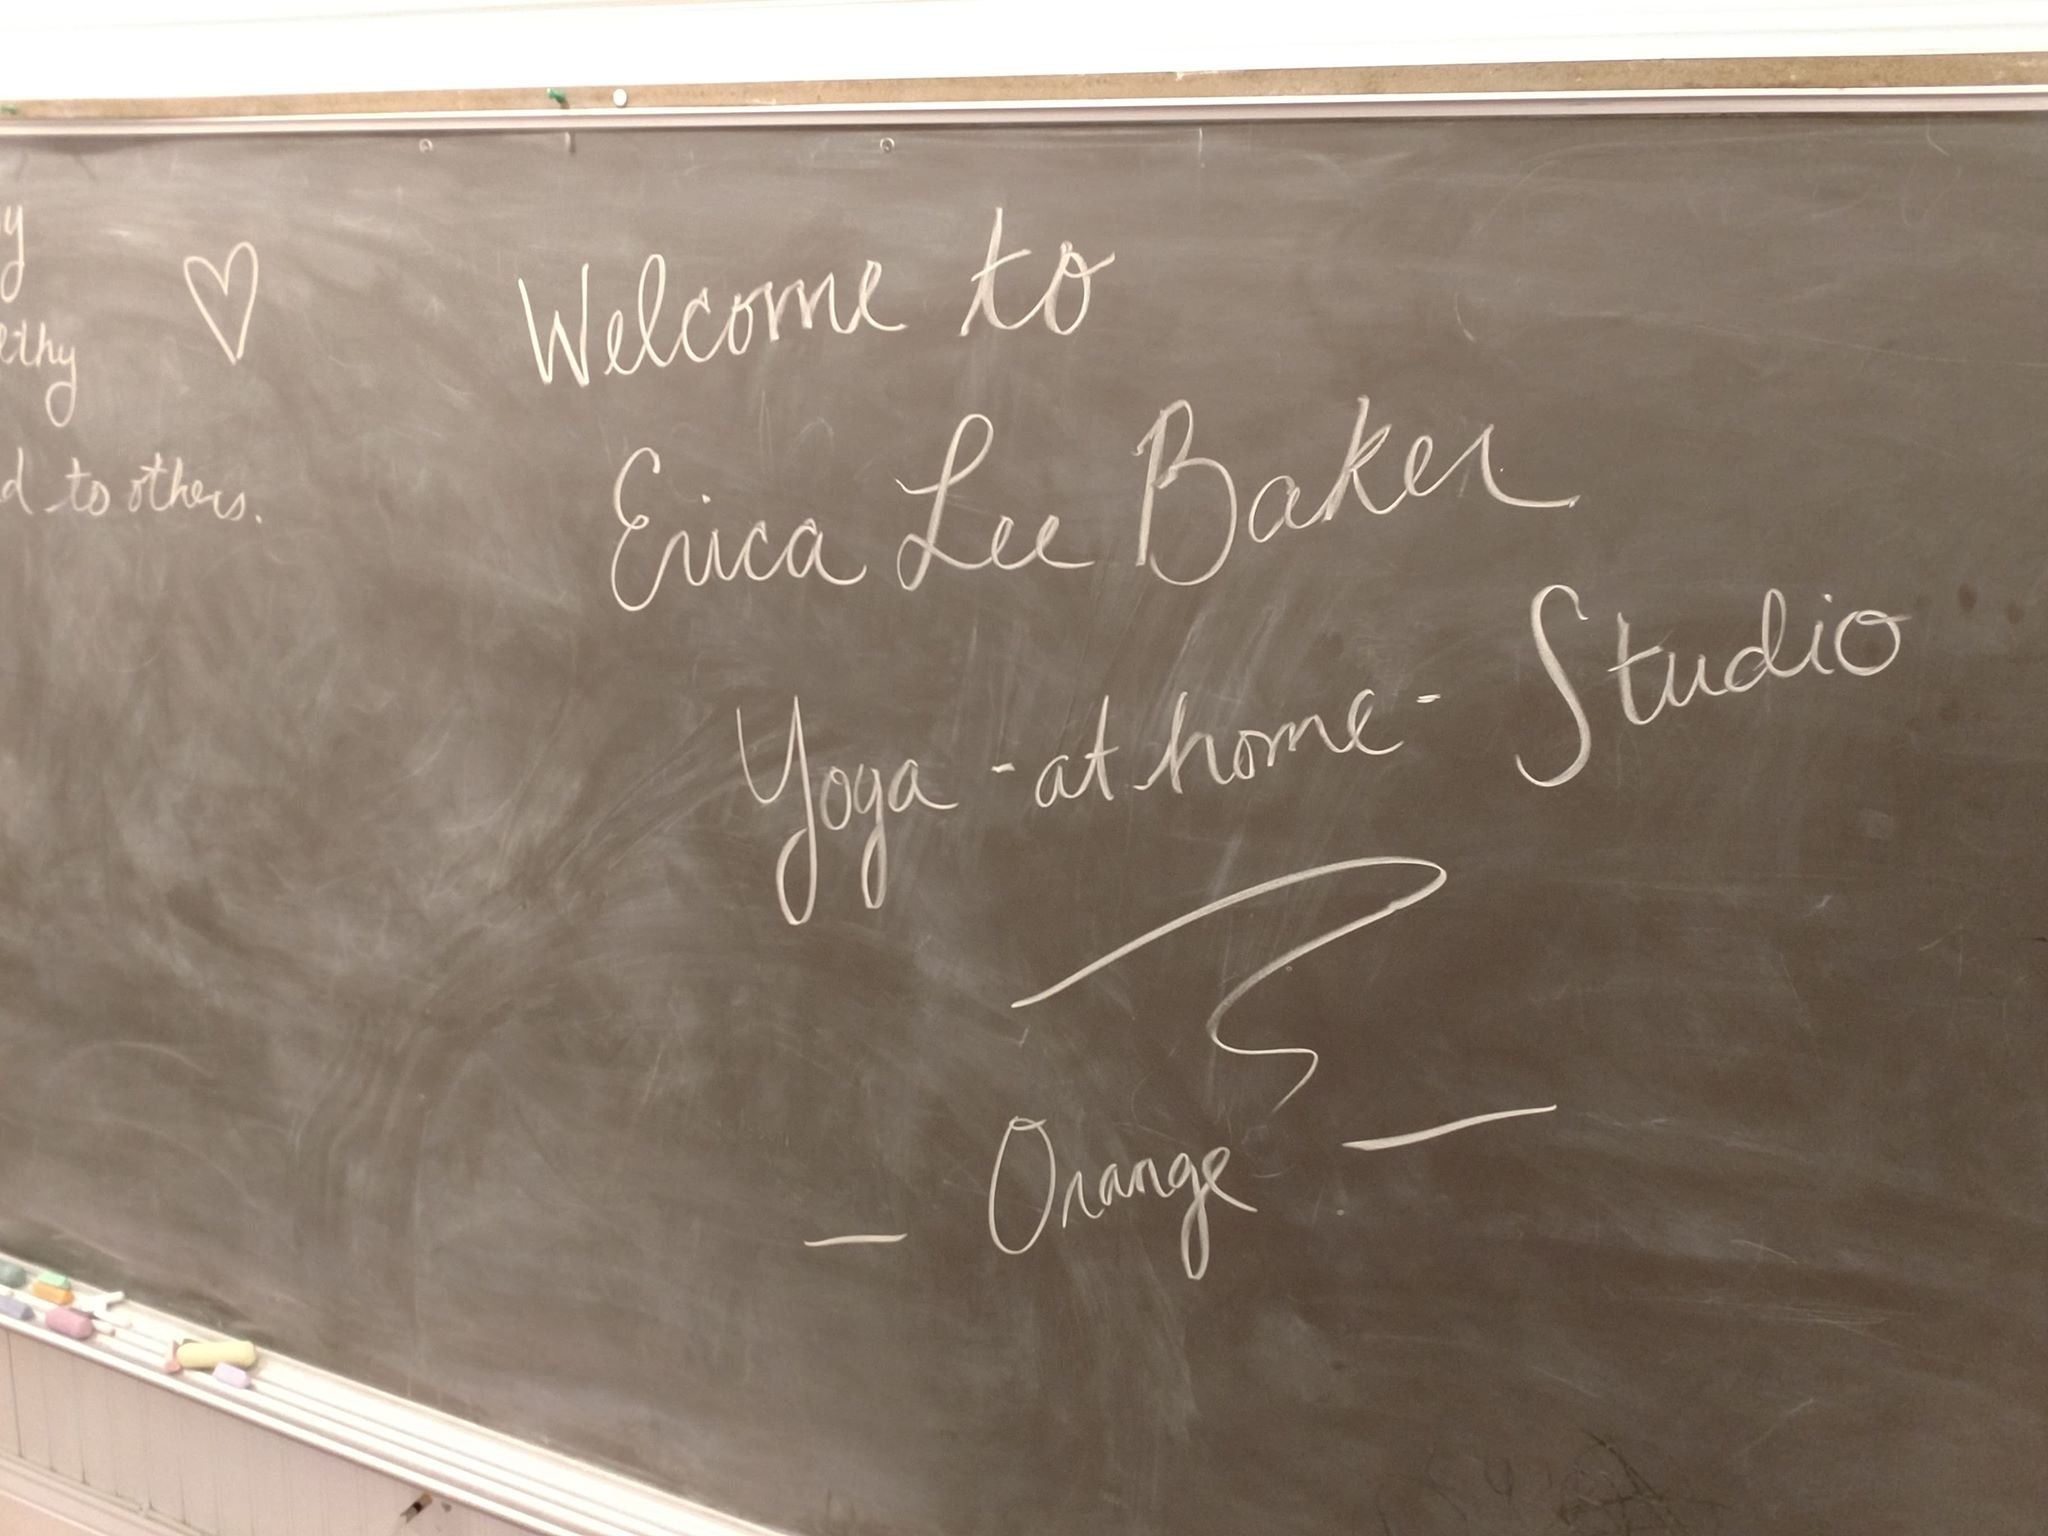 to others.
Welcome to
Erica Lee Baker
Yoga - at home - Studio
Orange